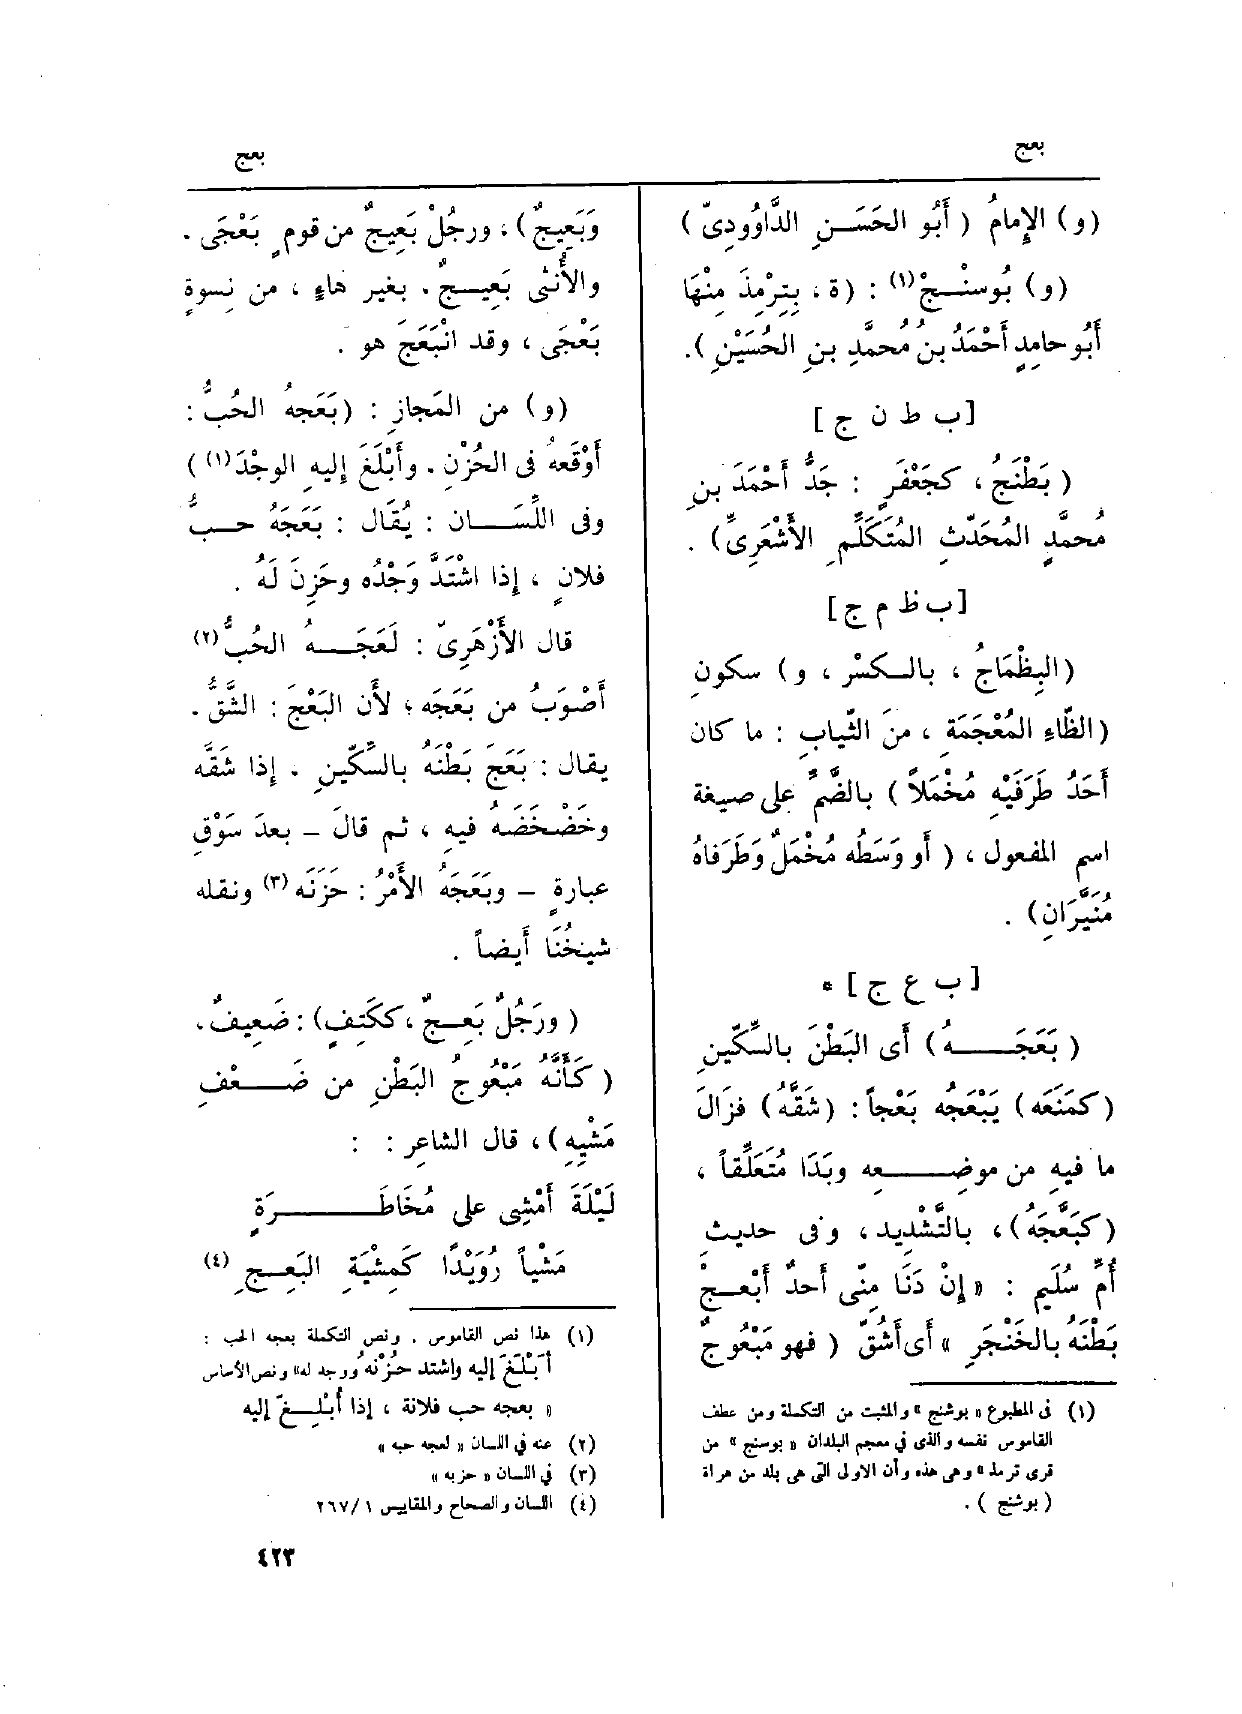 بعج
بعج
(و) الإِمامُ (أَبُو الحَسَنِ الدَّاوُودِىّ)
(و) بُوسَنْجُ(١) : (ة ، بِتِرْمِذَ مِنْهَا
أَبُو حامِدٍ أَحْمَدُ بنُ مُحمَّدِ بنِ الحُسَيْنِ).
[ب ط ن ج]
(بَطْنَجُ ، كجَعْفَرٍ : جَدُّ أَحْمَدَ بنِ
مُحمَّدٍ المُحَدِّثِ المُتَكَلِّمِ الأَشْعَرِىِّ) .
[ب ظ م ج]
(البِظْمَاجُ ، بالكسْرِ ، و) سكونِ
(الظَّاءِ المُعْجَمَةِ ، منَ الثِّيابِ : ما كان
أَحَدُ طَرَفَيْهِ مُخْمَلاً) بالضَّمِّ على صيغة
اسم المفعول ، (أَو وَسَطُه مُخْمَلٌ وَطَرَفاهُ
مُنَيَّرَانِ) .
[ب ع ج] *
(بَعَجَهُ) أَى البَطْنَ بالسِّكِّينِ
(كمَنَعَه) يَبْعَجُه بَعْجاً : (شَقَّهُ) فزَالَ
ما فيهِ من موضِعِه وبَدَا مُتَعَلِّقاً ،
(كبَعَّجَهُ)، بالتَّشْدِيد ، وفى حديثِ
أُمِّ سُلَيمٍ : «إِنْ دَنَا مِنّى أَحدٌ أَبْعَجْ
بَطْنَهُ بالخَنْجَرِ » أَى أَشُقَّ (فهو مَبْعُوجٌ
(١) فى المطبوع «بوشنج » والمثبت من التكملة ومن عطف
القاموس نفسه والذى فى معجم البلدان «بوسنج » من
قرى ترمذ » وهى هذه وأن الاولى التى هى بلد من هراة
(بوشنج) .
وَبَعِيجٌ) ، ورجُلٌ بَعِيجٌ من قومٍ بَعْجَى .
والأُنثى بَعِيجٌ . بغير هاءٍ ، من نِسوةٍ
بَعْجَى ، وقد انْبَعَجَ هو .
(و) من المَجازِ : (بَعَجهُ الحُبُّ :
أَوْقَعهُ فى الحُزْنِ . وأَبْلَغَ إِليهِ الوجْدَ(١))
وفى اللِّسَانِ : يُقَال : بَعَجَهُ حبُّ
فلانٍ ، إِذا اشْتَدَّ وَجْدُه وحَزِنَ لَهُ .
قال الأَزْهَرِىّ : لَعَجَهُ الحُبُّ(٢)
أَصْوَبُ من بَعَجَه ؛ لأَن البَعْجَ : الشَّقُّ .
يقال : بَعَجَ بَطْنَهُ بالسِّكِّينِ . إِذا شقَّه
وخَضْخَضَهُ فيهِ ، ثم قالَ – بعدَ سَوْقِ
عبارةٍ – وبَعَجَهُ الأَمْرُ : حَزَنَه (٣) ونقله
شيخُنَا أَيضاً .
(ورَجُلٌ بَعِجٌ ، ككَتِفٍ) : ضَعِيفٌ،
(كَأَنَّهُ مَبْعُوجُ البَطْنِ من ضَعْفِ
مَشْيِهِ) ، قال الشاعِر :
لَيْلَةَ أَمْشِى على مُخَاطَرَةٍ
مَشْياً رُوَيْدًا كَمِشْيَةِ البَعِجِ (٤)
(١) هذا نص القاموس . ونص التكملة بعجه الحب :
أبْلَغَ إليه واشتد حُزْنهُ ووجد له» ونص الأساس
« بعجه حب فلانة ، إذا أُبْلِغَ إليه
(٢) عنه فى اللسان « لعجه حبه »
(٣) فى اللسان « حزبه »
(٤) اللسان والصحاح والمقاييس ٢٦٧/١
٤٢٣